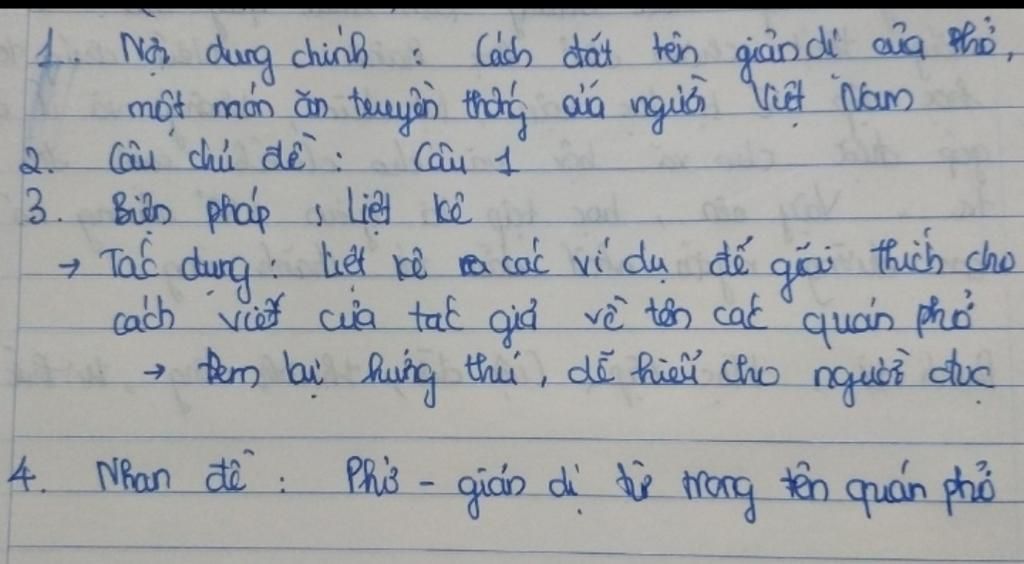 1. Nội dung chính : Cách đặt tên giản dị của phở,
một món ăn truyền thống của người Việt Nam
2. Câu chủ đề : Câu 1
3. Biện pháp : liệt kê
→ Tác dụng : Liệt kê ra các ví dụ để giải thích cho
cách viết của tác giả về tên các quán phở
→ Đem lại hứng thú, dễ hiểu cho người đọc
4. Nhan đề : Phở - giản dị từ trong tên quán phở